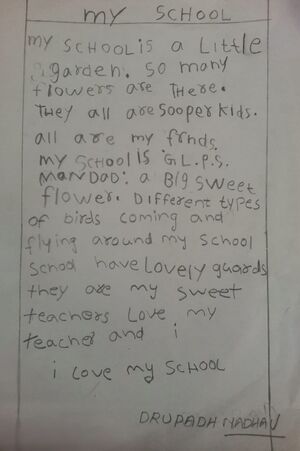 my SCHOOL
my SCHOOL is a LittLe
garden. so many
flowers are THere.
THey all are sooper kids.
all are my frnds.
my SCHOOL IS G.L.P.S.
MANDAD: a BIg sweet
flower. Different types
of birds coming and
flying around my School
School have Lovely guards
they are my sweet
teachers Love my
teacher and i
i Love my SCHOOL
DRUPADH MADHAV